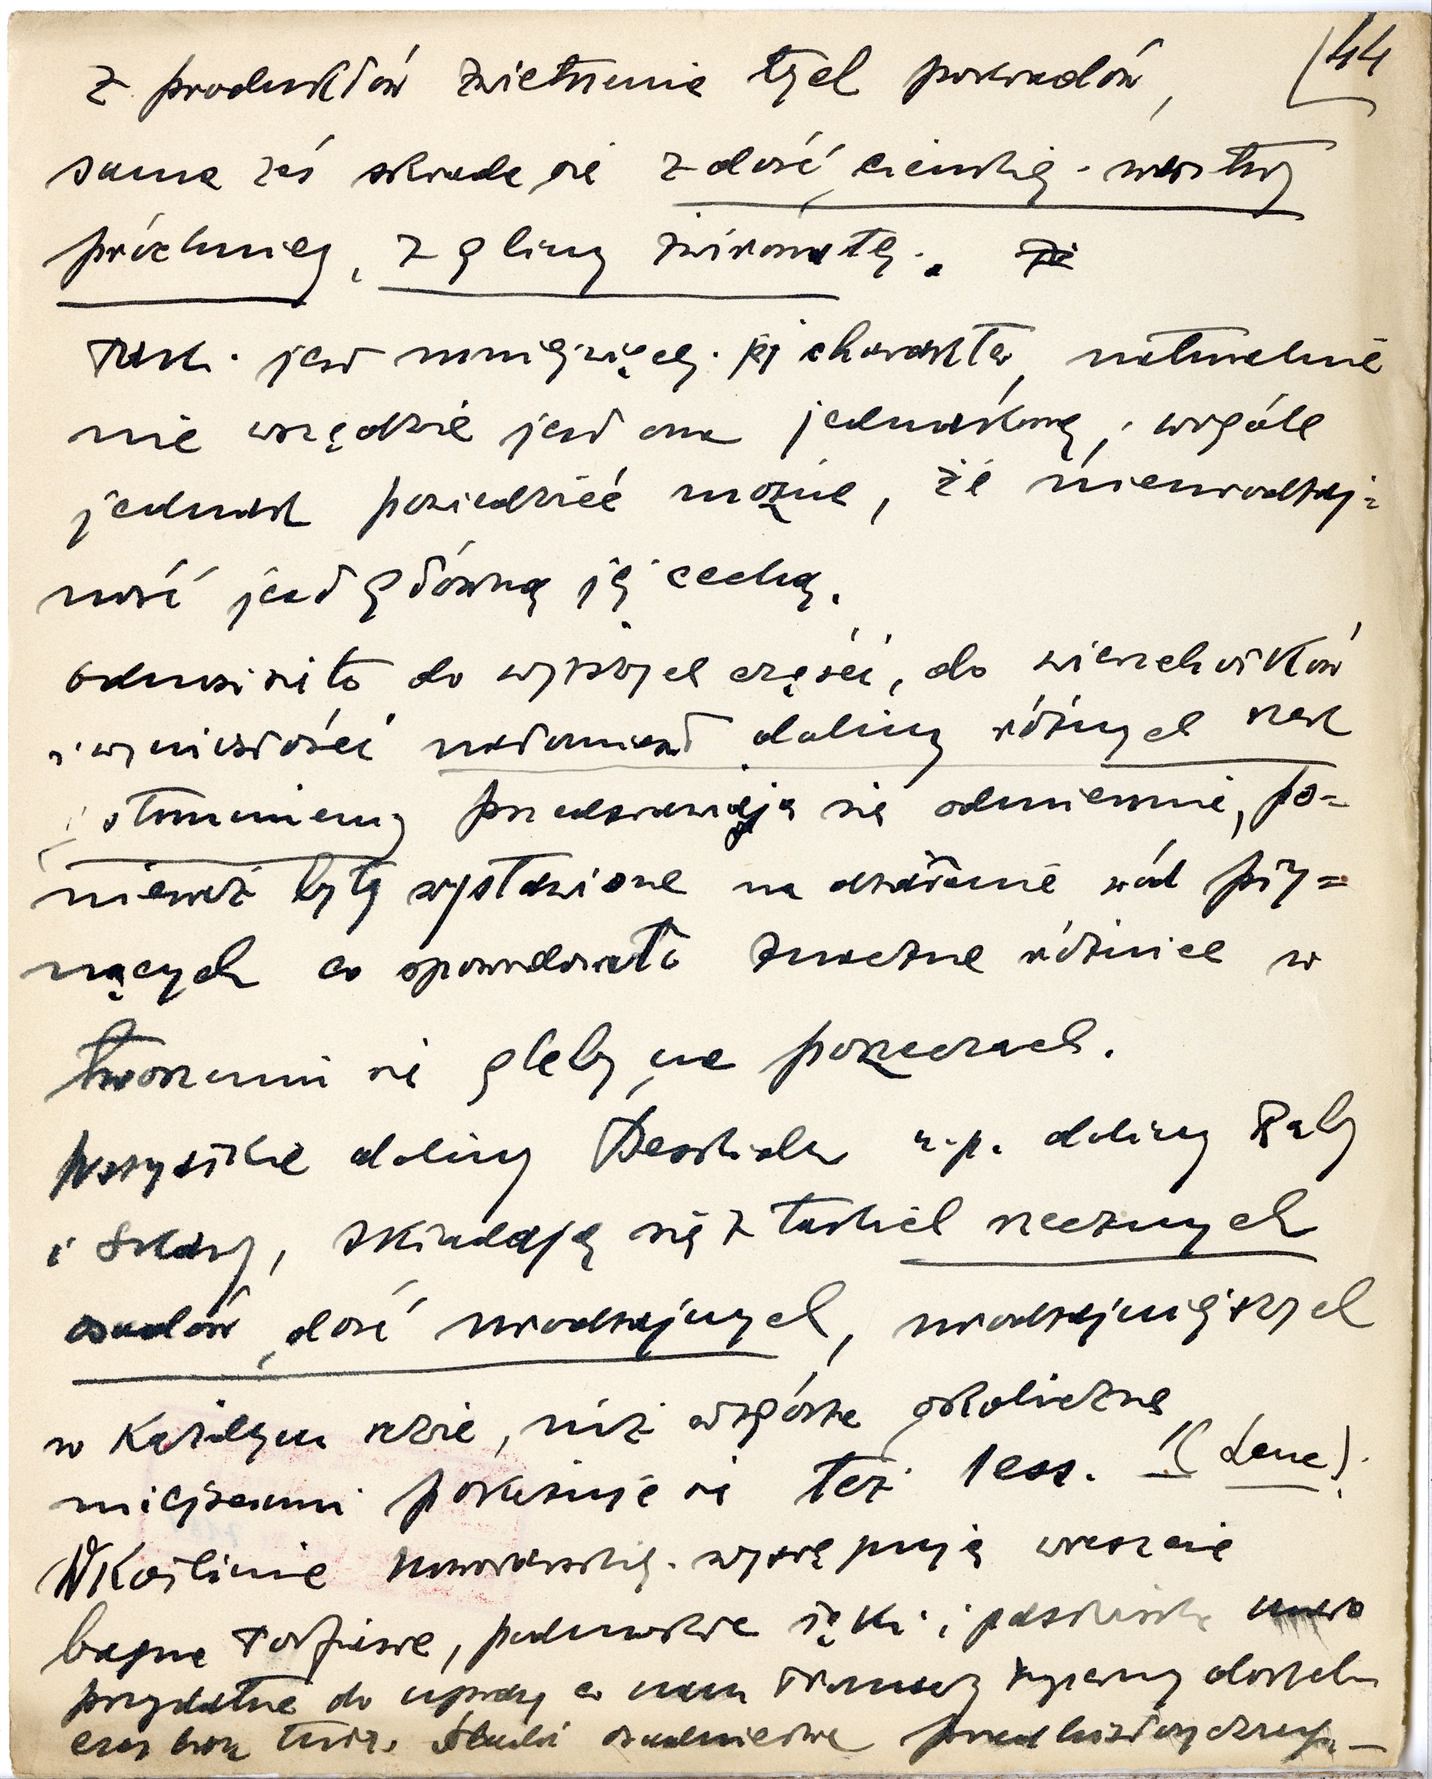 44
z produktów zwietrzenia tych pokładów,
sama zaś składa się z dość cienkiej warstwy
próchnicy, z gliny żwirowatej.
Taki jest mniej więcej jej charakter, naturalnie
nie wszędzie jest ona jednakową, wogóle
jednak powiedzieć można, że nieurodzaj=
ność jest główną jej cechą.
odnosi się to do wyższych części, do wierzchołków
i wyniosłości natomiast doliny różnych rzek
strumieni przedstawiają się odmiennie, po=
nieważ były wystawione na działanie wód pły=
nących co spowodowało znaczne różnice w
tworzeniu się gleby na porzeczach.
Wszystkie doliny Beskidu n.p. doliny Raby
i Skawy, składają się z takich rzecznych
osadów, dość urodzajnych, urodzajniejszych
w każdym razie, niż wzgórza okoliczne
miejscami pokazuje się też less.
W Kotlinie nowotarskiej występują wreszcie
bagna torfiaste, podmokłe łąki i pastwiska mało
przydatne do uprawy co nam tłumaczy
czas brak tutaj śladu osadnictwa przedhistoryczny_